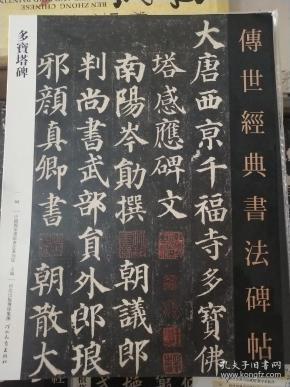 傳世經典書法碑帖
大唐西京千福寺多寶佛
塔感應碑文
南陽岑勛撰 朝議郎
判尚書武部員外郎琅
邪顏真卿書 朝散大
多寶塔碑
河北教育出版社